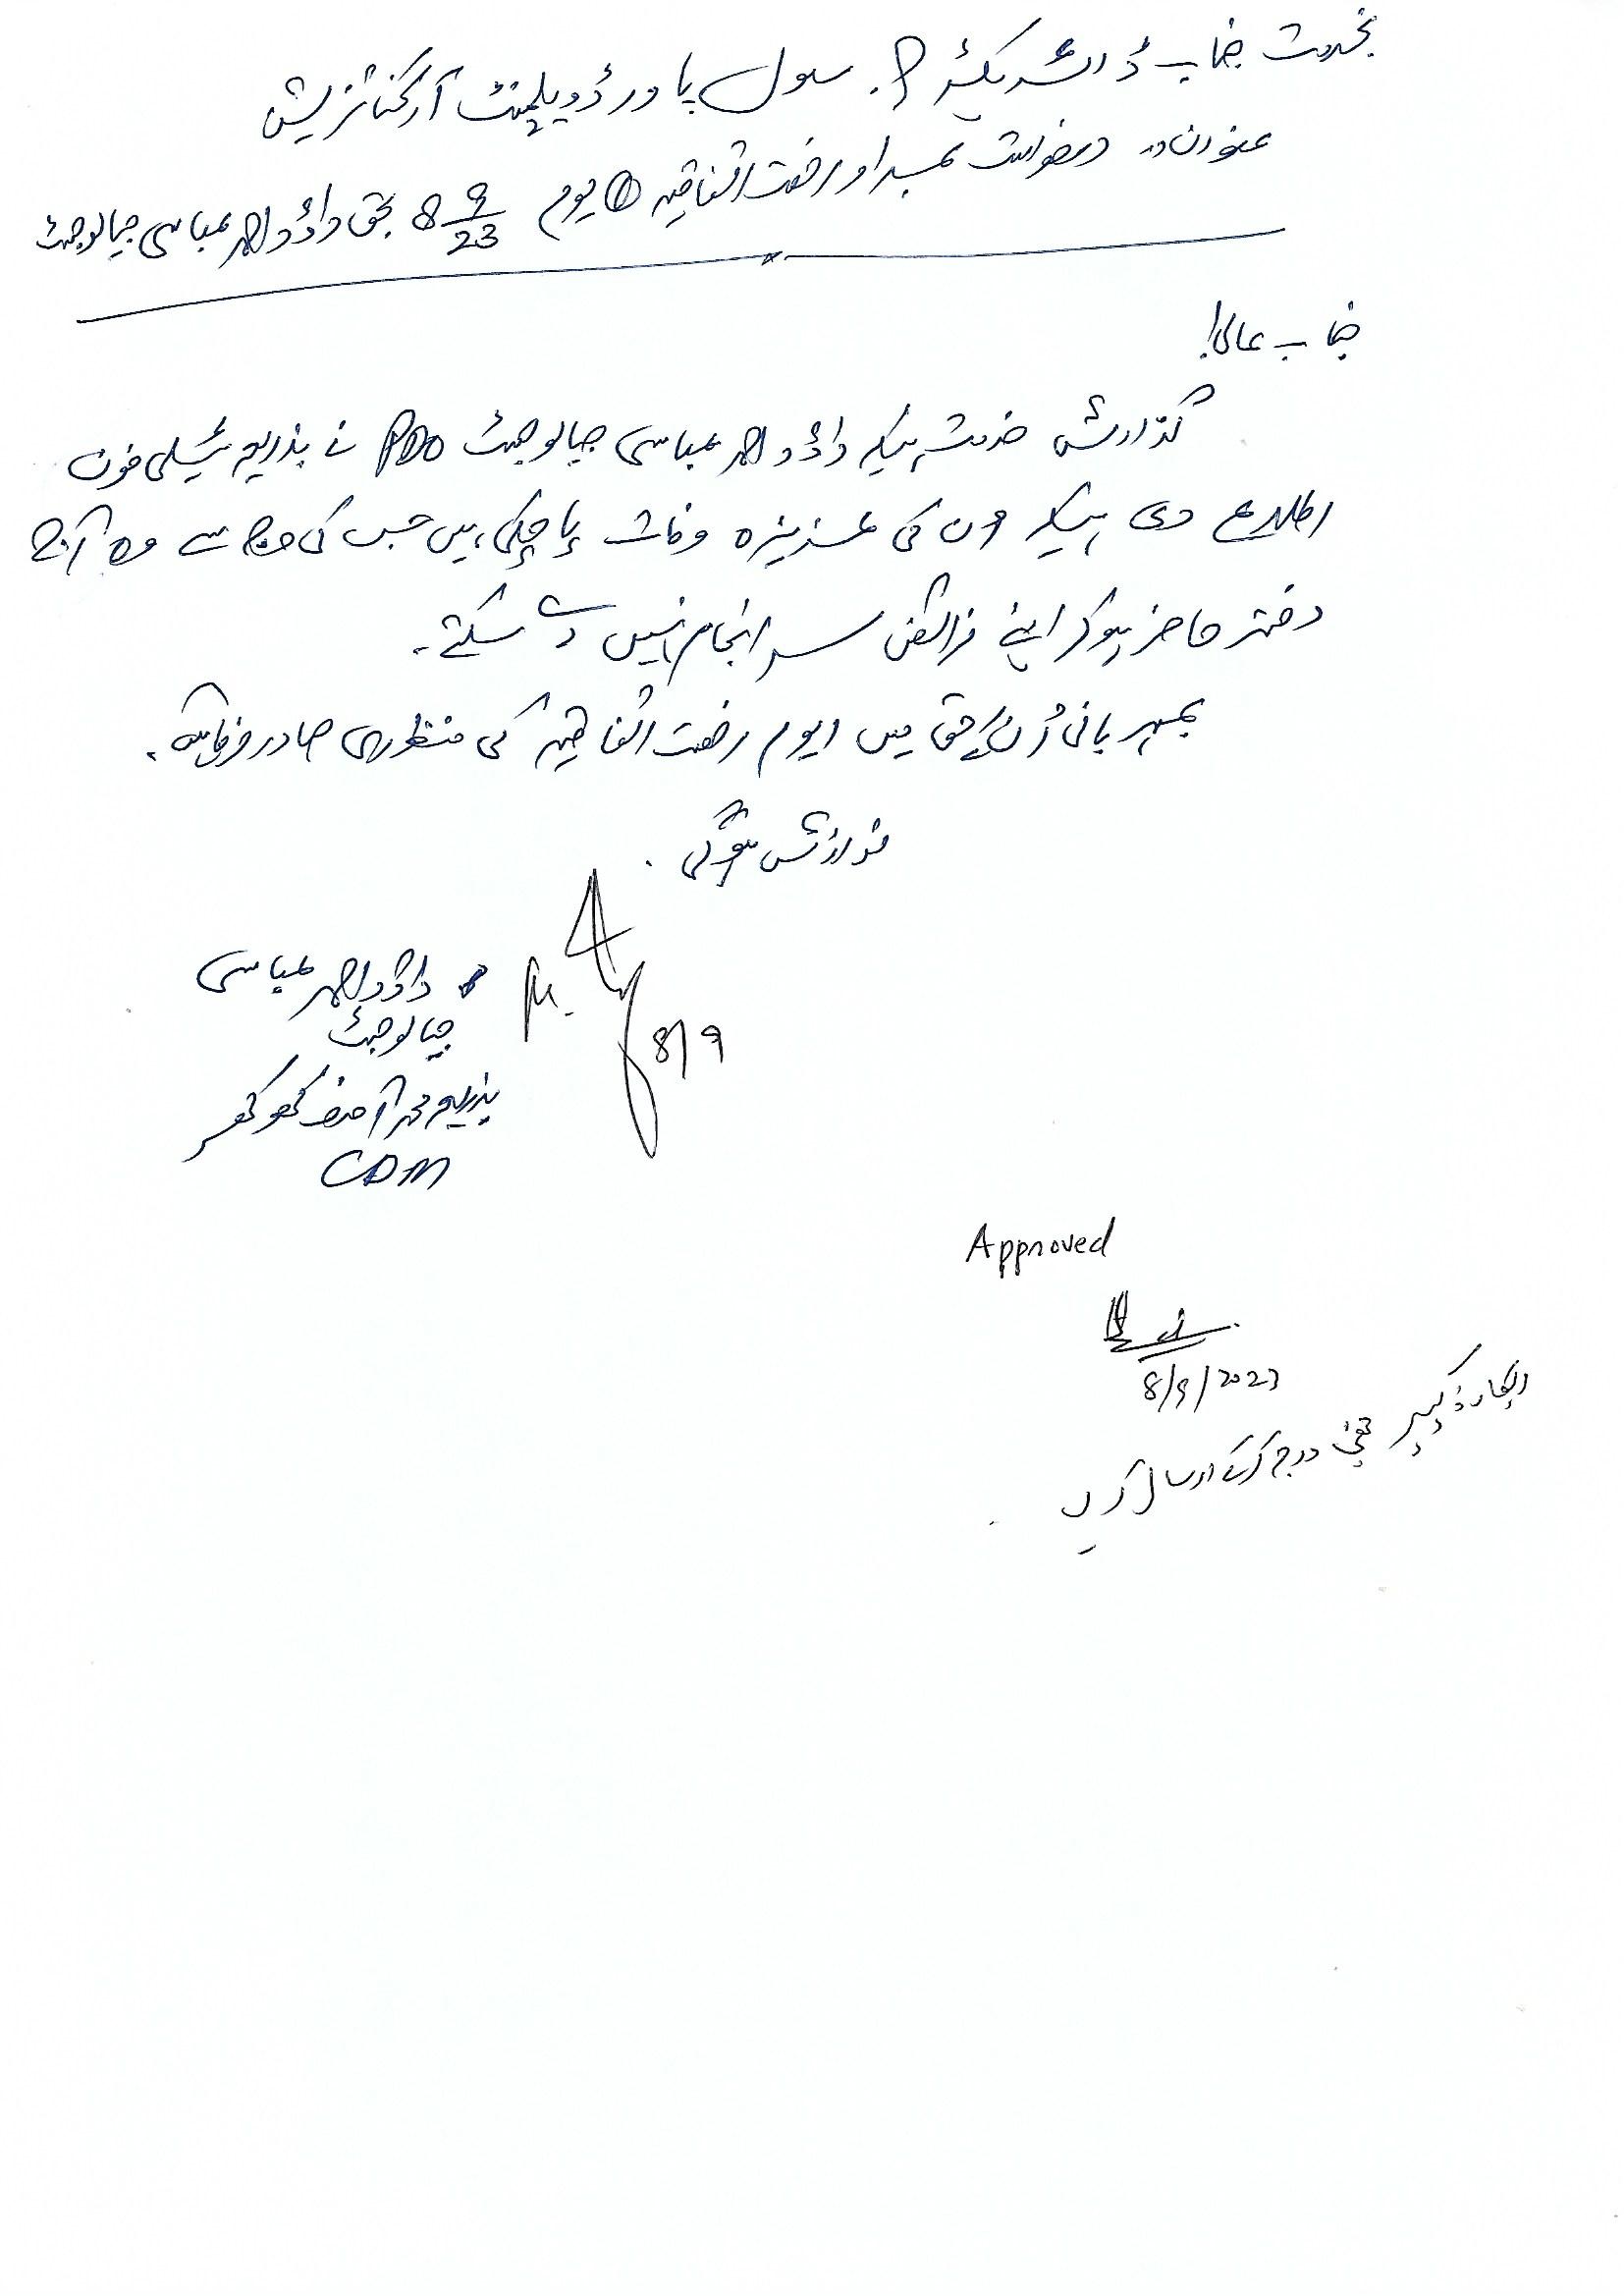 بخدمت جناب ڈائریکٹر P. سول پاور ڈویلپمنٹ آرگنائزیشن
عنوان:۔ درخواست بمراد رخصت اتفاقیہ ① یوم 8 9/23 بحق داؤد احمد عباسی جیالوجسٹ
جناب عالی!
گذارش خدمت ہیکہ داؤد احمد عباسی جیالوجسٹ PDO نے بذریعہ ٹیلی فون
اطلاع دی ہیکہ اون کی عزیزہ وفات پا چکی ہیں جس کی وجہ سے وہ آج
دفتر حاضر ہوکر اپنے فرائض سر انجام نہیں دے سکتے۔
بمہربانی اُن کے حق میں 1یوم رخصت اتفاقیہ کی منظوری صادر فرمائی۔
نوازش ہوگی۔
داؤد احمد عباسی
جیالوجسٹ
بذریعہ محمد آصف کھوکھر
CDM
8/9
Approved
8/9/2023
ریکارڈ کیپر درج کرکے ارسال کریں